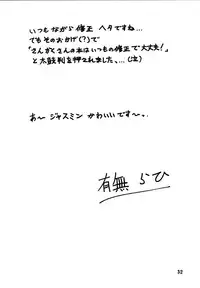 いつもながら修正 ヘタですね…
でもそのおかげ(?)で
「さんかくさんの本はいつもの修正で大丈夫!」
と太鼓判を押されました…。(泣)
あ〜 ジャスミン かわいいです〜。
有無 らひ
32